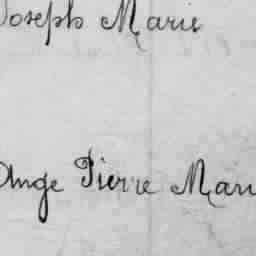 Joseph Marie
Ange Pierre Mari